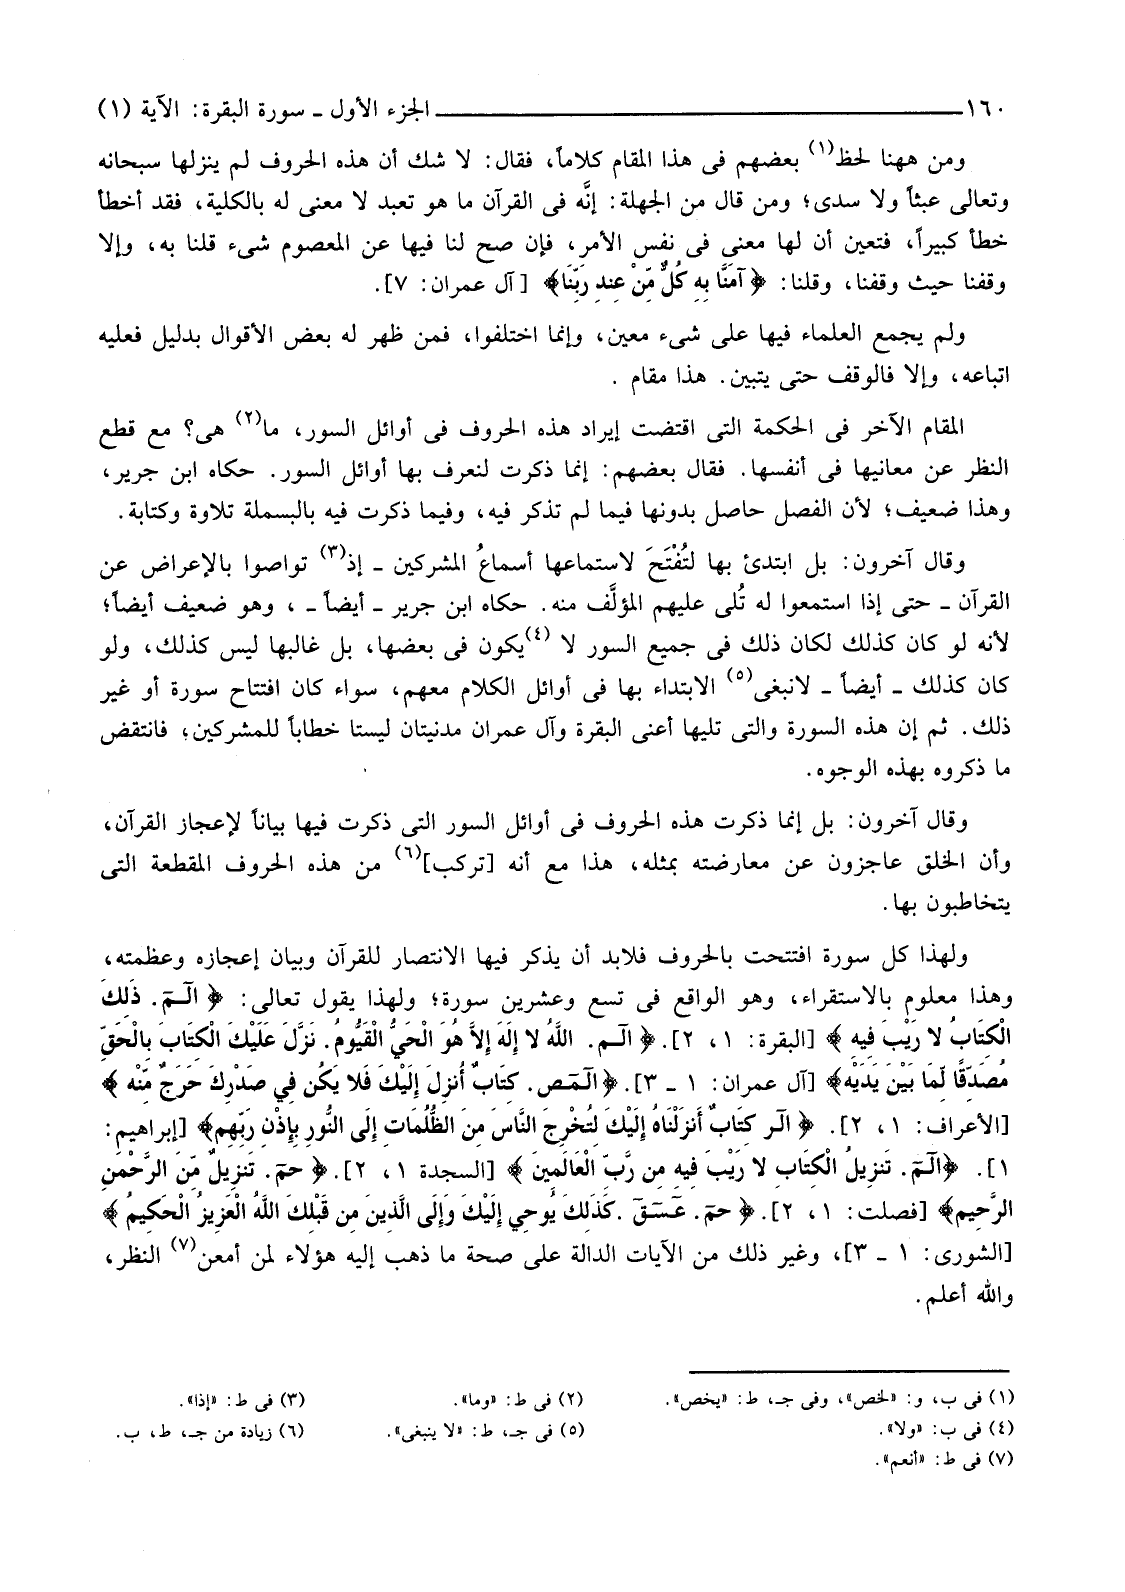 ١٦٠ الجزء الأول ـ سورة البقرة: الآية (١)
ومن ههنا لحظ(١) بعضهم فى هذا المقام كلاماً، فقال: لا شك أن هذه الحروف لم ينزلها سبحانه
وتعالى عبثاً ولا سدى؛ ومن قال من الجهلة: إنَّه فى القرآن ما هو تعبد لا معنى له بالكلية، فقد أخطأ
خطأ كبيراً، فتعين أن لها معنى فى نفس الأمر، فإن صح لنا فيها عن المعصوم شىء قلنا به، وإلا
وقفنا حيث وقفنا، وقلنا: ﴿آمَنَّا بِهِ كُلٌّ مِّنْ عِندِ رَبِّنَا﴾ [آل عمران: ٧].
ولم يجمع العلماء فيها على شىء معين، وإنما اختلفوا، فمن ظهر له بعض الأقوال بدليل فعليه
اتباعه، وإلا فالوقف حتى يتبين. هذا مقام .
المقام الآخر فى الحكمة التى اقتضت إيراد هذه الحروف فى أوائل السور، ما(٢) هى؟ مع قطع
النظر عن معانيها فى أنفسها. فقال بعضهم: إنما ذكرت لنعرف بها أوائل السور. حكاه ابن جرير،
وهذا ضعيف؛ لأن الفصل حاصل بدونها فيما لم تذكر فيه، وفيما ذكرت فيه بالبسملة تلاوة وكتابة.
وقال آخرون: بل ابتدئ بها لتُفْتَحَ لاستماعها أسماعُ المشركين ـ إذ(٣) تواصوا بالإعراض عن
القرآن ـ حتى إذا استمعوا له تُلى عليهم المؤلَّف منه. حكاه ابن جرير ـ أيضاً ـ ، وهو ضعيف أيضاً؛
لأنه لو كان كذلك لكان ذلك فى جميع السور لا (٤)يكون فى بعضها، بل غالبها ليس كذلك، ولو
كان كذلك ـ أيضاً ـ لانبغى(٥) الابتداء بها فى أوائل الكلام معهم، سواء كان افتتاح سورة أو غير
ذلك. ثم إن هذه السورة والتى تليها أعنى البقرة وآل عمران مدنيتان ليستا خطاباً للمشركين؛ فانتقض
ما ذكروه بهذه الوجوه.
وقال آخرون: بل إنما ذكرت هذه الحروف فى أوائل السور التى ذكرت فيها بياناً لإعجاز القرآن،
وأن الخلق عاجزون عن معارضته بمثله، هذا مع أنه [تركب](٦) من هذه الحروف المقطعة التى
يتخاطبون بها.
ولهذا كل سورة افتتحت بالحروف فلابد أن يذكر فيها الانتصار للقرآن وبيان إعجازه وعظمته،
وهذا معلوم بالاستقراء، وهو الواقع فى تسع وعشرين سورة؛ ولهذا يقول تعالى: ﴿ الٓـمٓ. ذَلِكَ
الْكِتَابُ لا رَيْبَ فِيهِ ﴾ [البقرة: ١، ٢].﴿ الٓـم. اللَّهُ لا إِلَهَ إِلاَّ هُوَ الْحَيُّ الْقَيُّومُ. نَزَّلَ عَلَيْكَ الْكِتَابَ بِالْحَقِّ
مُصَدِّقًا لِّمَا بَيْنَ يَدَيْهِ﴾ [آل عمران: ١ ـ ٣].﴿الٓمٓص. كِتَابٌ أُنزِلَ إِلَيْكَ فَلا يَكُن فِي صَدْرِكَ حَرَجٌ مِّنْهُ ﴾
[الأعراف: ١، ٢]. ﴿ الٓر كِتَابٌ أَنزَلْنَاهُ إِلَيْكَ لِتُخْرِجَ النَّاسَ مِنَ الظُّلُمَاتِ إِلَى النُّورِ بِإِذْنِ رَبِّهِمْ﴾ [إبراهيم:
١]. ﴿الٓـمٓ. تَنزِيلُ الْكِتَابِ لا رَيْبَ فِيهِ مِن رَّبِّ الْعَالَمِينَ ﴾ [السجدة ١، ٢].﴿ حمٓ. تَنزِيلٌ مِّنَ الرَّحْمَنِ
الرَّحِيمِ﴾ [فصلت: ١، ٢].﴿ حمٓ. عٓسٓقٓ .كَذَلِكَ يُوحِي إِلَيْكَ وَإِلَى الَّذِينَ مِن قَبْلِكَ اللَّهُ الْعَزِيزُ الْحَكِيمُ ﴾
[الشورى: ١ ـ ٣]، وغير ذلك من الآيات الدالة على صحة ما ذهب إليه هؤلاء لمن أمعن(٧) النظر،
والله أعلم.
(١) فى ب، و: «لخص»، وفى جـ، ط: «يخص». (٢) فى ط: «وما». (٣) فى ط: «إذا».
(٤) فى ب: «ولا». (٥) فى جـ، ط: «لا ينبغى». (٦) زيادة من جـ، ط، ب.
(٧) فى ط: «أنعم».